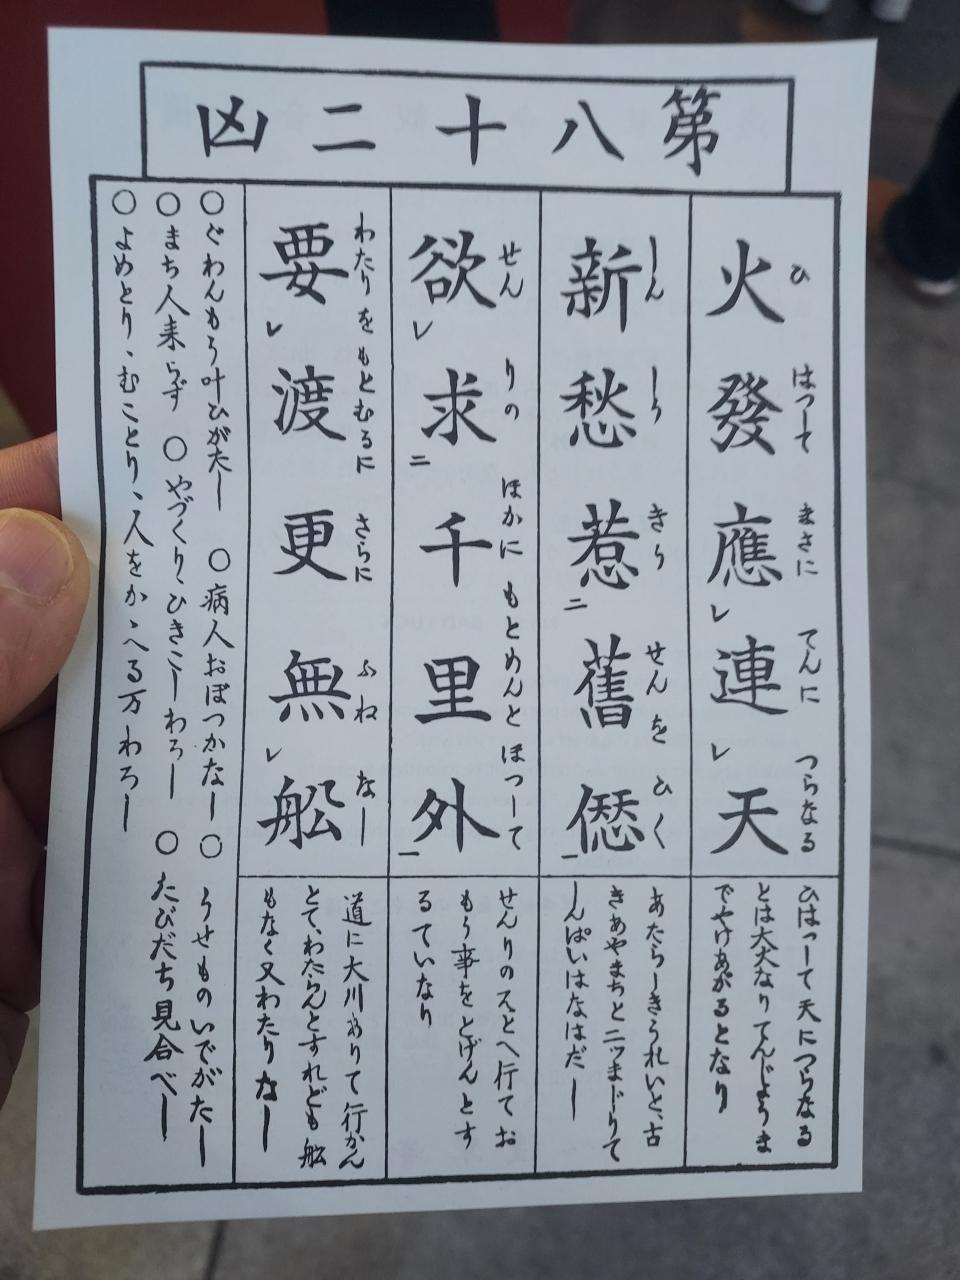 第八十二凶
火發應レ連レ天
ひ はつして まさに てんに つらなる
ひはつして天につらなる
とは大火なりてんじようま
でやけあがるとなり
新愁惹二舊愆一
しん しう きう せんを ひく
あたらしきうれいと、古
きあやまちと二ツまじりて
しんぱいはなはだし
欲レ求二千里外一
せん りの ほかに もとめんと ほつして
せんりのそとへ行てお
もう事をとげんとす
るていなり
要レ渡更無レ舩
わたりを もとむるに さらに ふね なし
道に大川ありて行かん
とて、わたらんとすれども舩
もなく又わたりなし
○ぐわんもう叶ひがたし ○病人おぼつかなし ○うせものいでがたし
○まち人来らず ○やづくり、ひきこしわろし ○たびだち見合べし
○よめとり、むことり、人をかゝへる万わろし